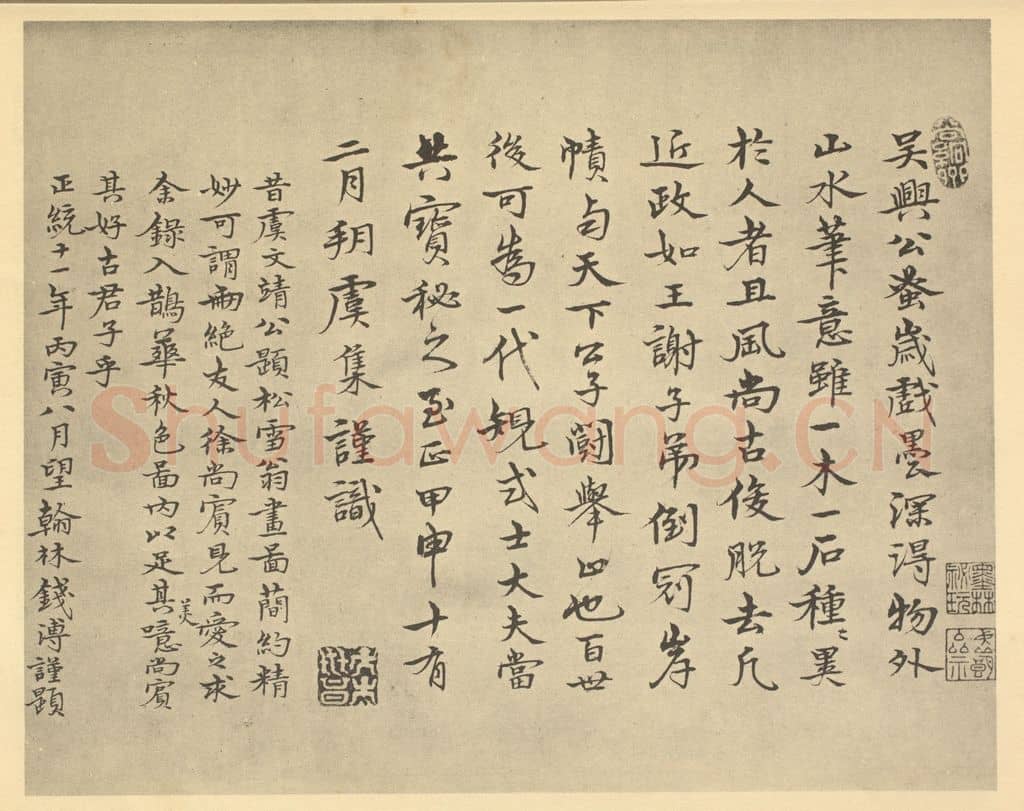 吴興公蚤歲戲墨深得物外
山水筆意雖一木一石種〻異
於人者且風尚古俊脱去凡
近政如王謝子弟倒冠岸
幘与天下公子鬭舉止也百世
後可爲一代規式士大夫當
共寶秘之至正甲申十有
二月朔虞集謹識
昔虞文靖公題松雪翁畫啚蕳約精
妙可謂兩絶友人徐尚賓見而愛之求
余錄入鵲華秋色啚内以足其美噫尚賓
其好古君子乎
正統十一年丙寅八月望翰林錢溥謹題
墨林秘玩
Shufawang.CN